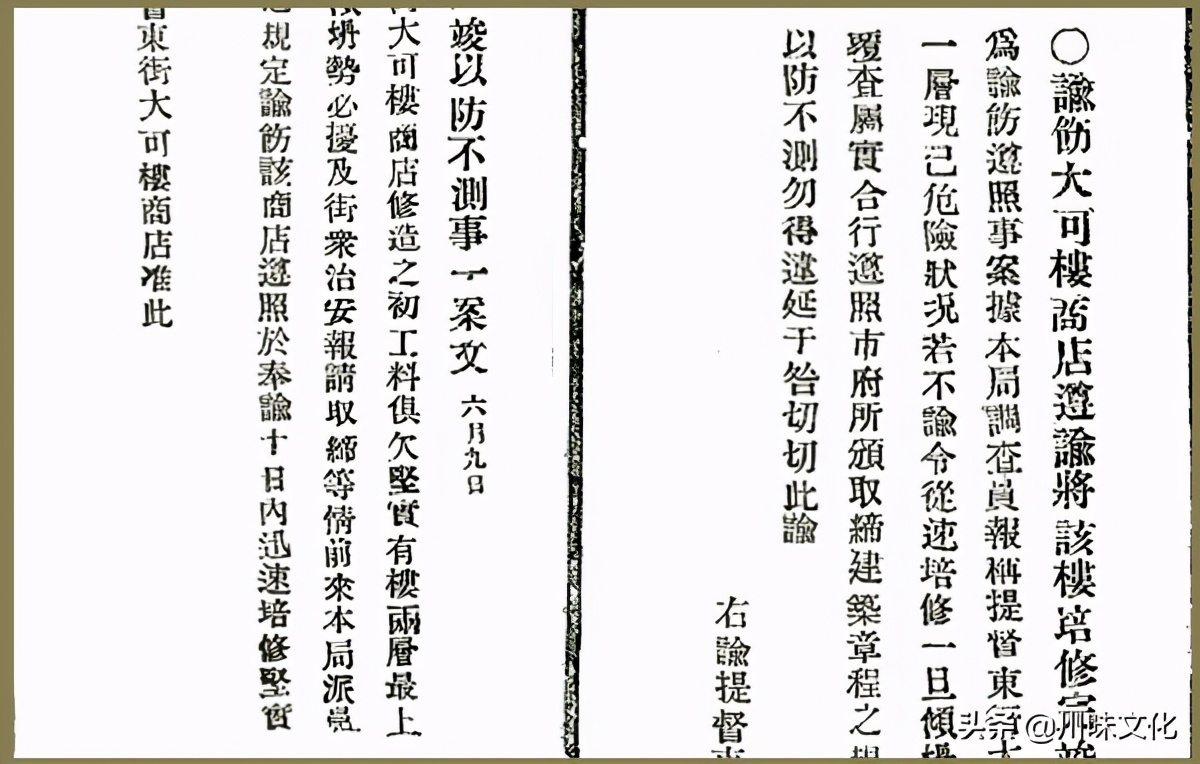 〇諭飭大可樓商店遵諭將該樓培修完竣
爲諭飭遵照事案據本局調查員報稱提督東街大
一層現已危險狀况若不諭令從速培修一旦傾
覆查屬實合行遵照市府所頒取締建築章程之規
以防不測勿得違延干咎切切此諭
右諭提督東
竣以防不測事一案文 六月九日
街大可樓商店修造之初工料俱欠堅實有樓兩層最上
傾坍勢必擾及街衆治安報請取締等情前來本局派員
規定諭飭該商店遵照於奉諭十日內迅速培修堅實
督東街大可樓商店准此
头条 @川味文化